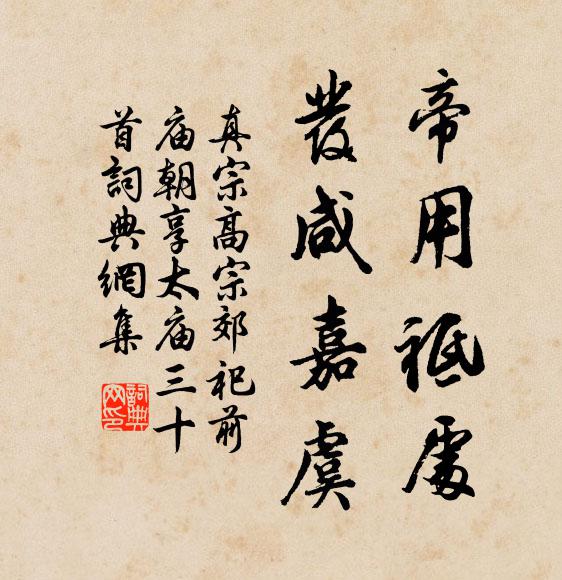 帝用祗處
發咸嘉虞
真宗高宗郊祀前
庙朝享太庙三十
首詞典網集
詞典网印